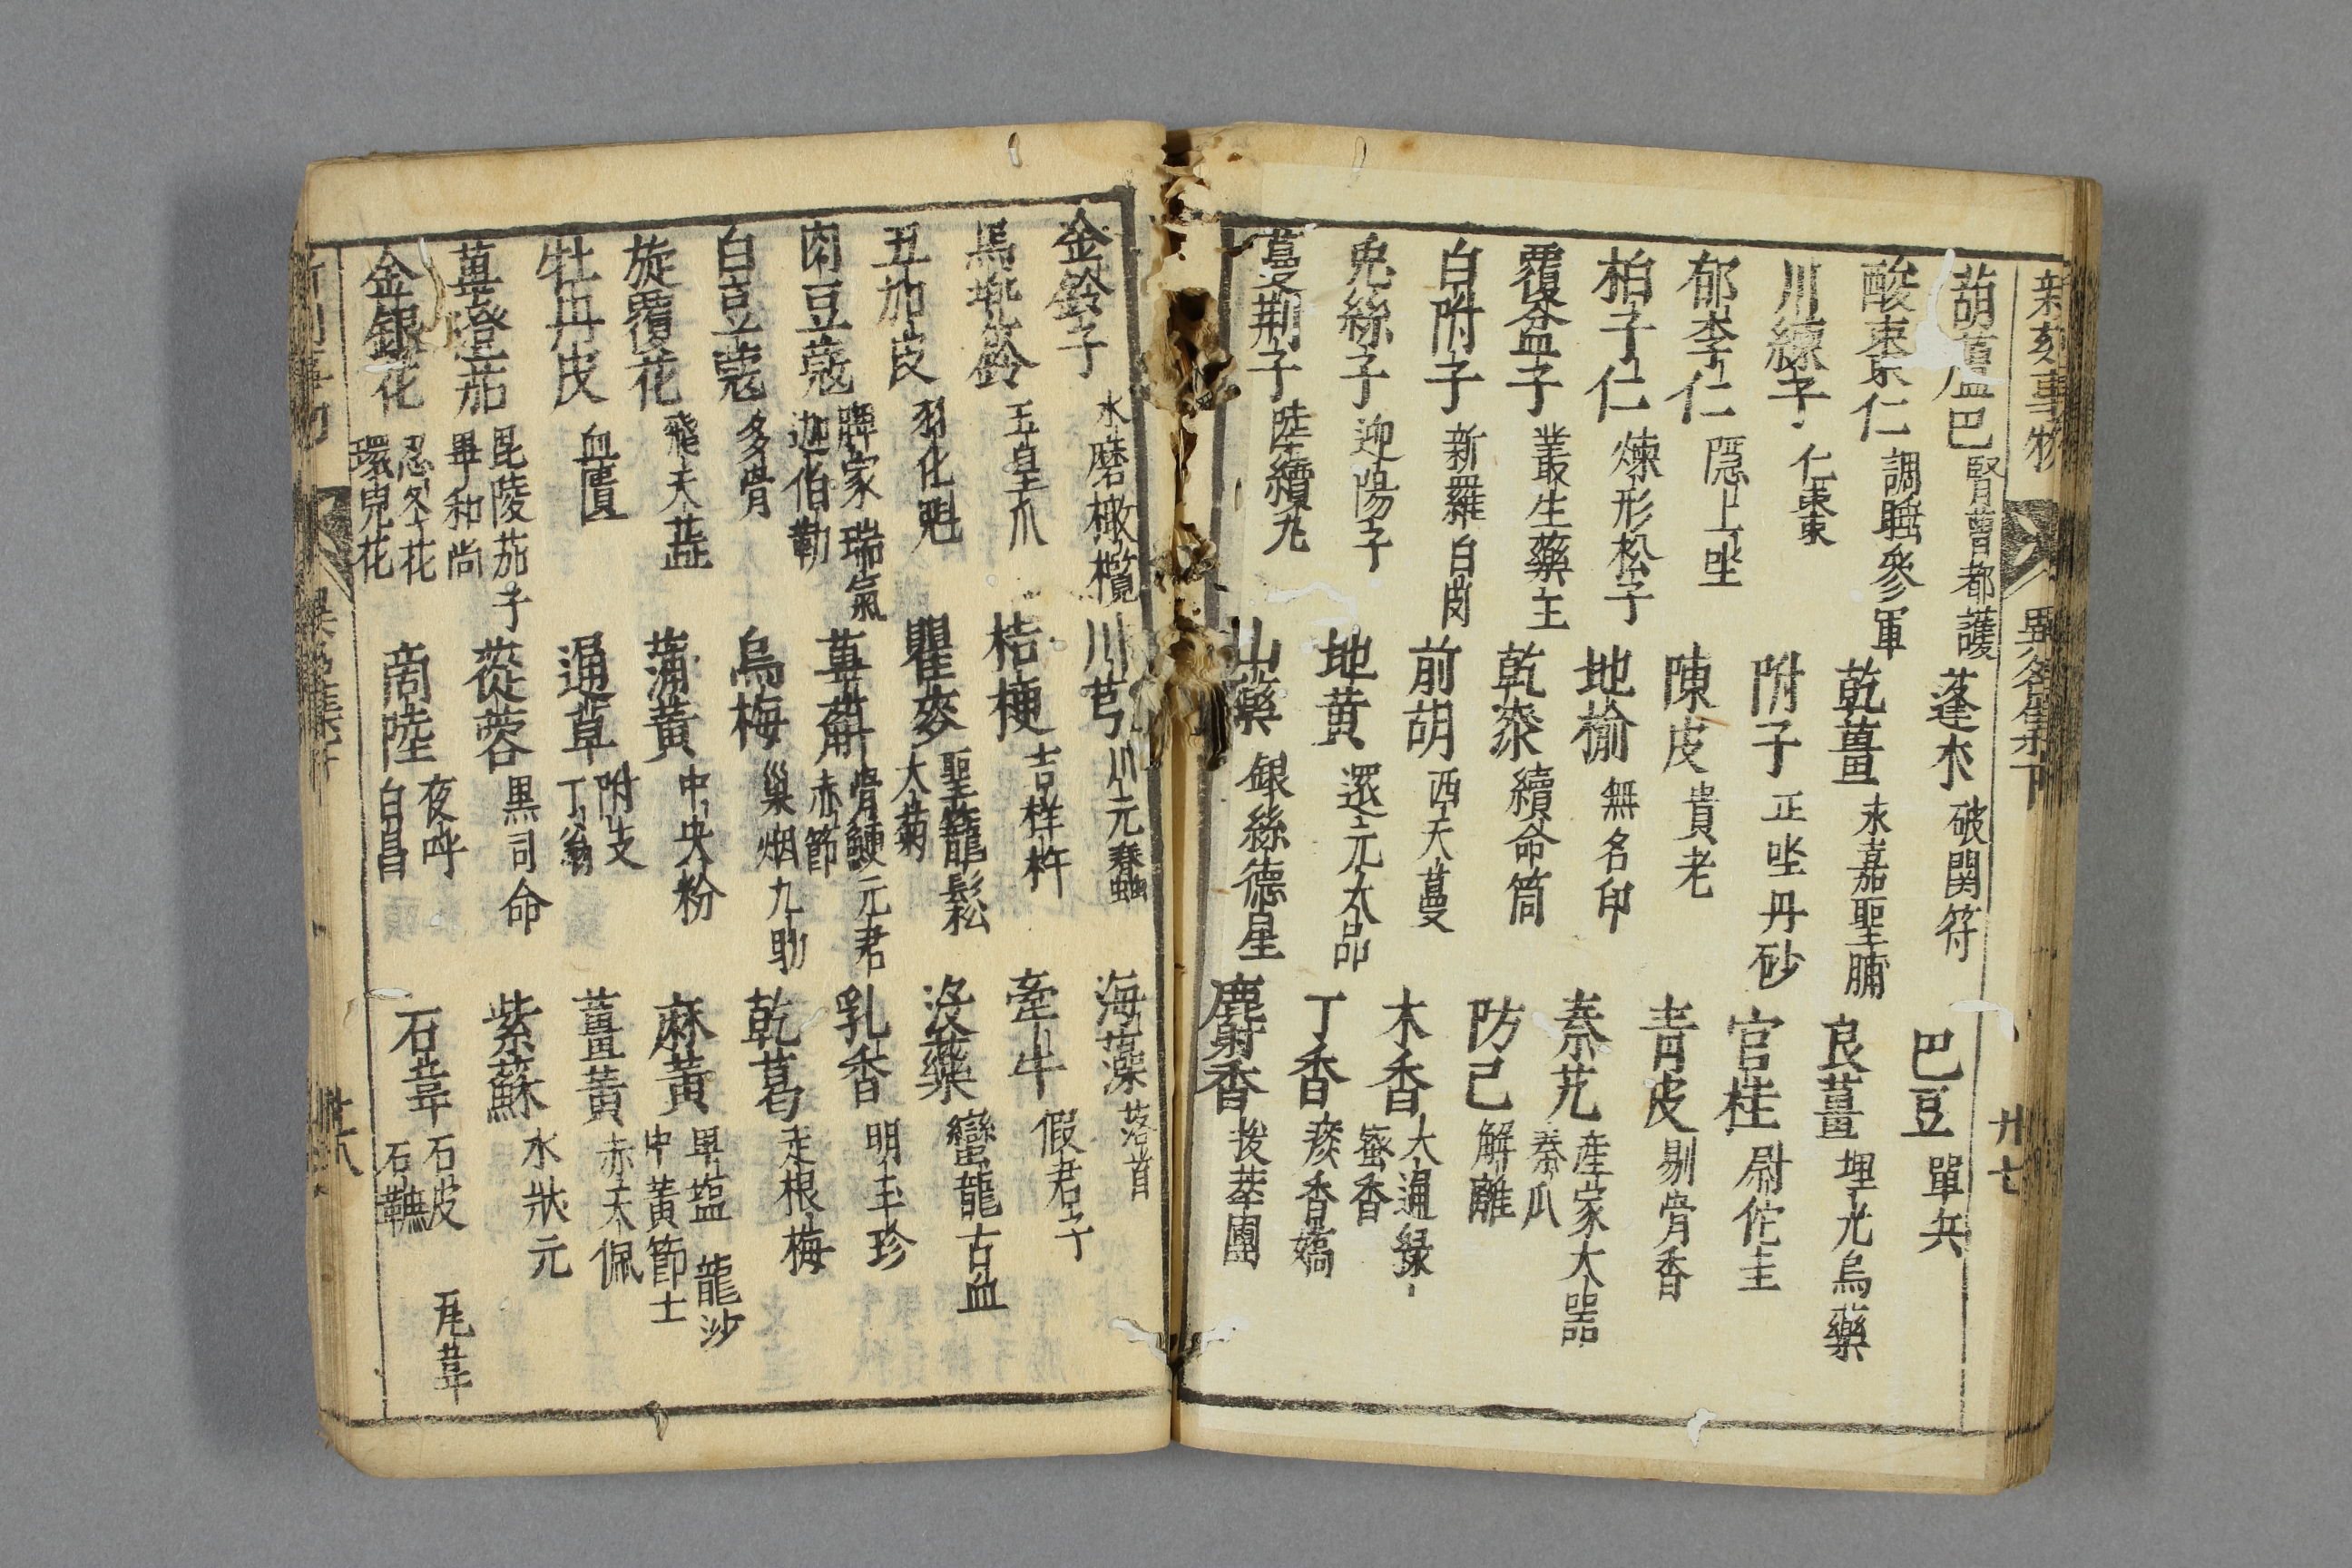 新刻事物 異名集下 卅七
葫蘆巴 腎曹都護 蓬朮 破関符 巴豆 單兵
酸棗仁 調睡參軍 乾薑 末嘉聖脯 良薑 埋光烏藥
川練子 仁棗 附子 正坐丹砂 官桂 尉佗圭
郁李仁 隱上坐 陳皮 貴老 青皮 剔骨香
柏子仁 煉形松子 地榆 無名印 秦艽 産家大器 秦瓜
覆盆子 叢生藥王 乾漆 續命筒 防己 解離
白附子 新羅白肉 前胡 西天蔓 木香 大通綠 蜜香
兎絲子 迎陽子 地黄 還元大品 丁香 瘦香嬌
蔓荆子 陸續丸 山藥 銀絲德星 麝香 拨萃團
金鈴子 水磨橄欖 川芎 川元蠢 海藻 落首
馬兠鈴 玉皇瓜 桔梗 吉祥杵 牽牛 假君子
五加皮 羽化魁 瞿麥 聖籠鬆 大菊 没藥 蠻龍古血
肉豆蔻 脾家瑞氣 迦佝勒 萆薢 骨鯁元君 赤節 乳香 明玉珍
白豆蔻 多骨 烏梅 巢烟九肋 乾葛 走根梅
旋覆花 飛天蕋 蒲黃 中央粉 麻黃 卑塩 龍沙 中黃節士
牡丹皮 血匱 通草 附支 丁翁 薑黃 赤天佩
蓽澄茄 毘陵茄子 畢和尚 蓯蓉 黒司命 紫蘇 水狀元
金銀花 忍冬花 環兒花 商陸 夜呼 白昌 石韋 石皮 石䩾 瓦韋